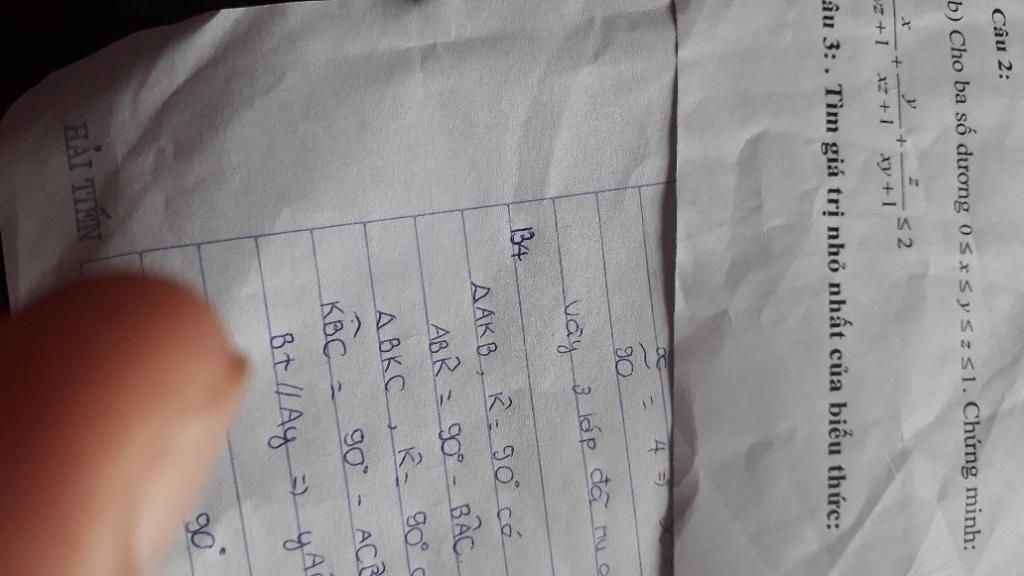 Câu 2:
b) Cho ba số dương 0 ≤ x ≤ y ≤ z ≤ 1. Chứng minh:
x/yz+1 + y/xz+1 + z/xy+1 ≤ 2
âu 3: . Tìm giá trị nhỏ nhất của biểu thức:
x/90 = 4 =)
Vậy 3 lớp đã
B4
ΔAKB, K̂ = 90° có
ABK̂ = 90° - BÂC
ΔBKC, K̂ = 90°
KB̂C = 90° - AĈB
Bt // Ay =)
90°
HẢI TIẾN